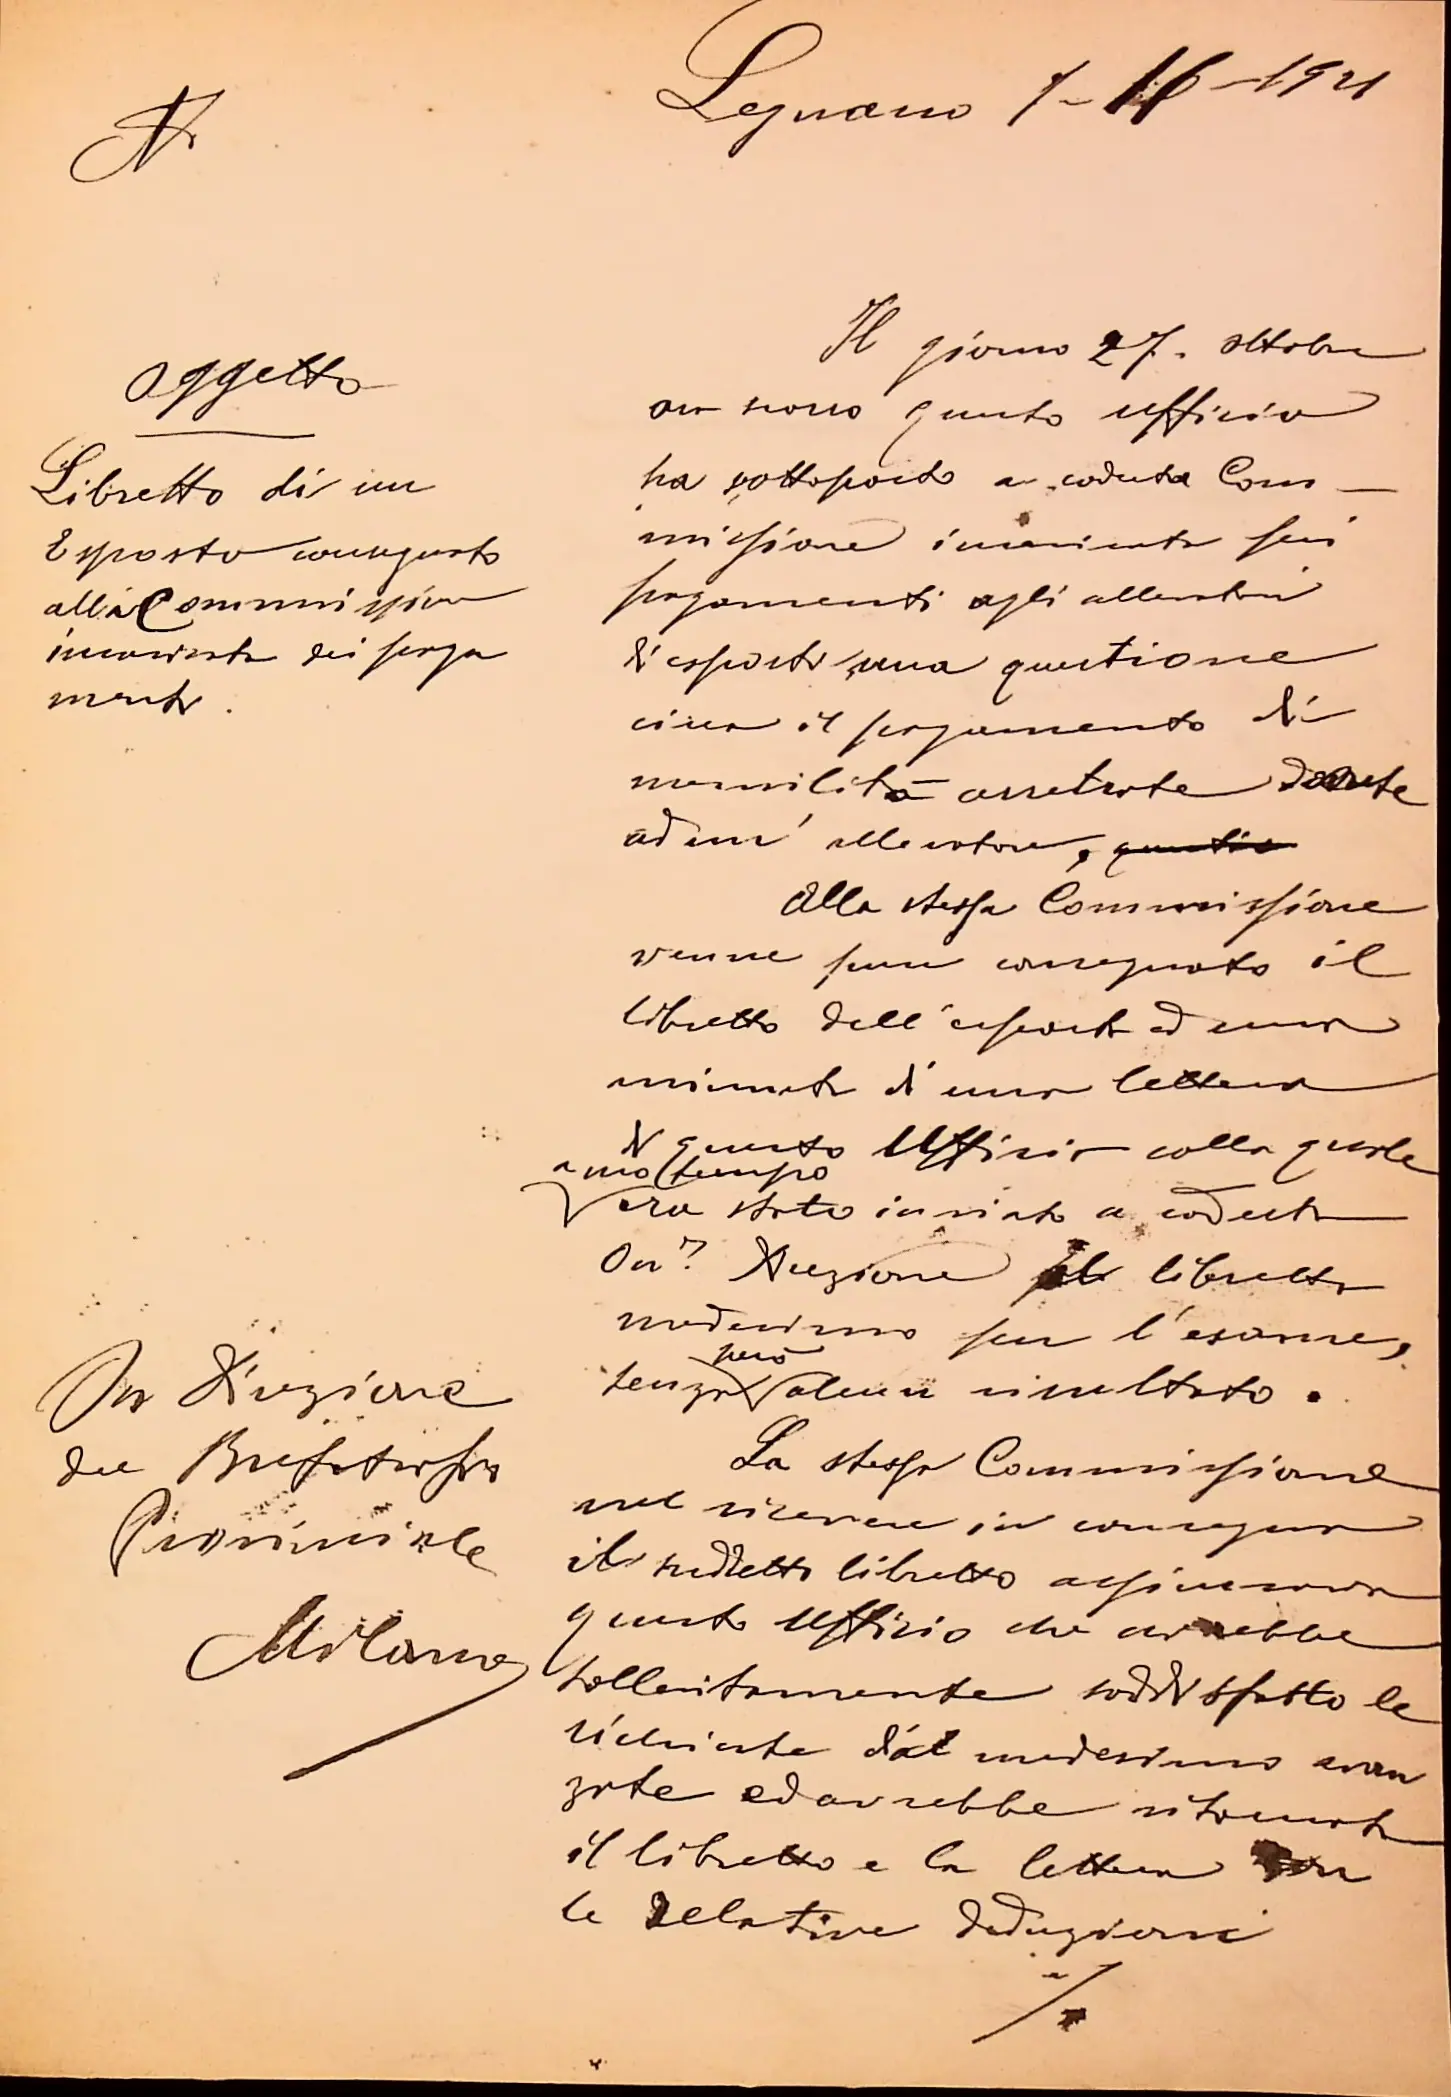 Legnano 1-16-1921
N
Oggetto
Libretto di un
Esposto consegnato
alla Commissione
incaricata dei paga
menti.
On Direzione
del Brefotrofio
Provinciale
Milano
Il giorno 27. ottobre
or scorso questo ufficio
ha sottoposto a codesta Com-
missione incaricata pei
pagamenti agli allevatori
di esposti, una questione
circa il pagamento di
mensilità arretrate dovute
ad un' allevatore,
Alla stessa Commissione
venne pure consegnato il
libretto dell'esposto ed una
minuta di una lettera
di questo Ufficio colla quale
a suo tempo
era stato inviato a codesta
On. Direzione il libretto
medesimo per l'esame,
però
senza alcun risultato.
La stessa Commissione
nel ricevere in consegna
il suddetto libretto assicurava
questo Ufficio che avrebbe
sollecitamente soddisfatto le
richieste dal medesimo avan
zate ed avrebbe ritornato
il libretto e la lettera con
le relative deduzioni
./.